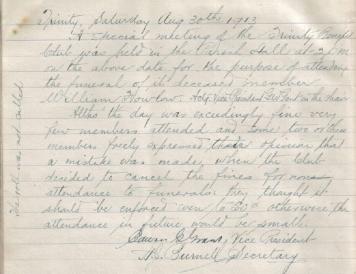 Trinity, Saturday Aug 30th 1913
A special meeting of the Trinity
Club was held in the Hall at 2 P.M.
on the above date for the purpose of attending
the funeral of it deceased member
William Vice President in the chair
Altho' the day was exceedingly fine very
few members attended and some two or three
members freely expressed their opinion that
a mistake was made, when the Club
decided to cancel the fines for non
attendance to funerals they thought it
should be enforced even to otherwise the
attendance in future would be smaller
Grant, Vice President
Burnell Secretary
was not called